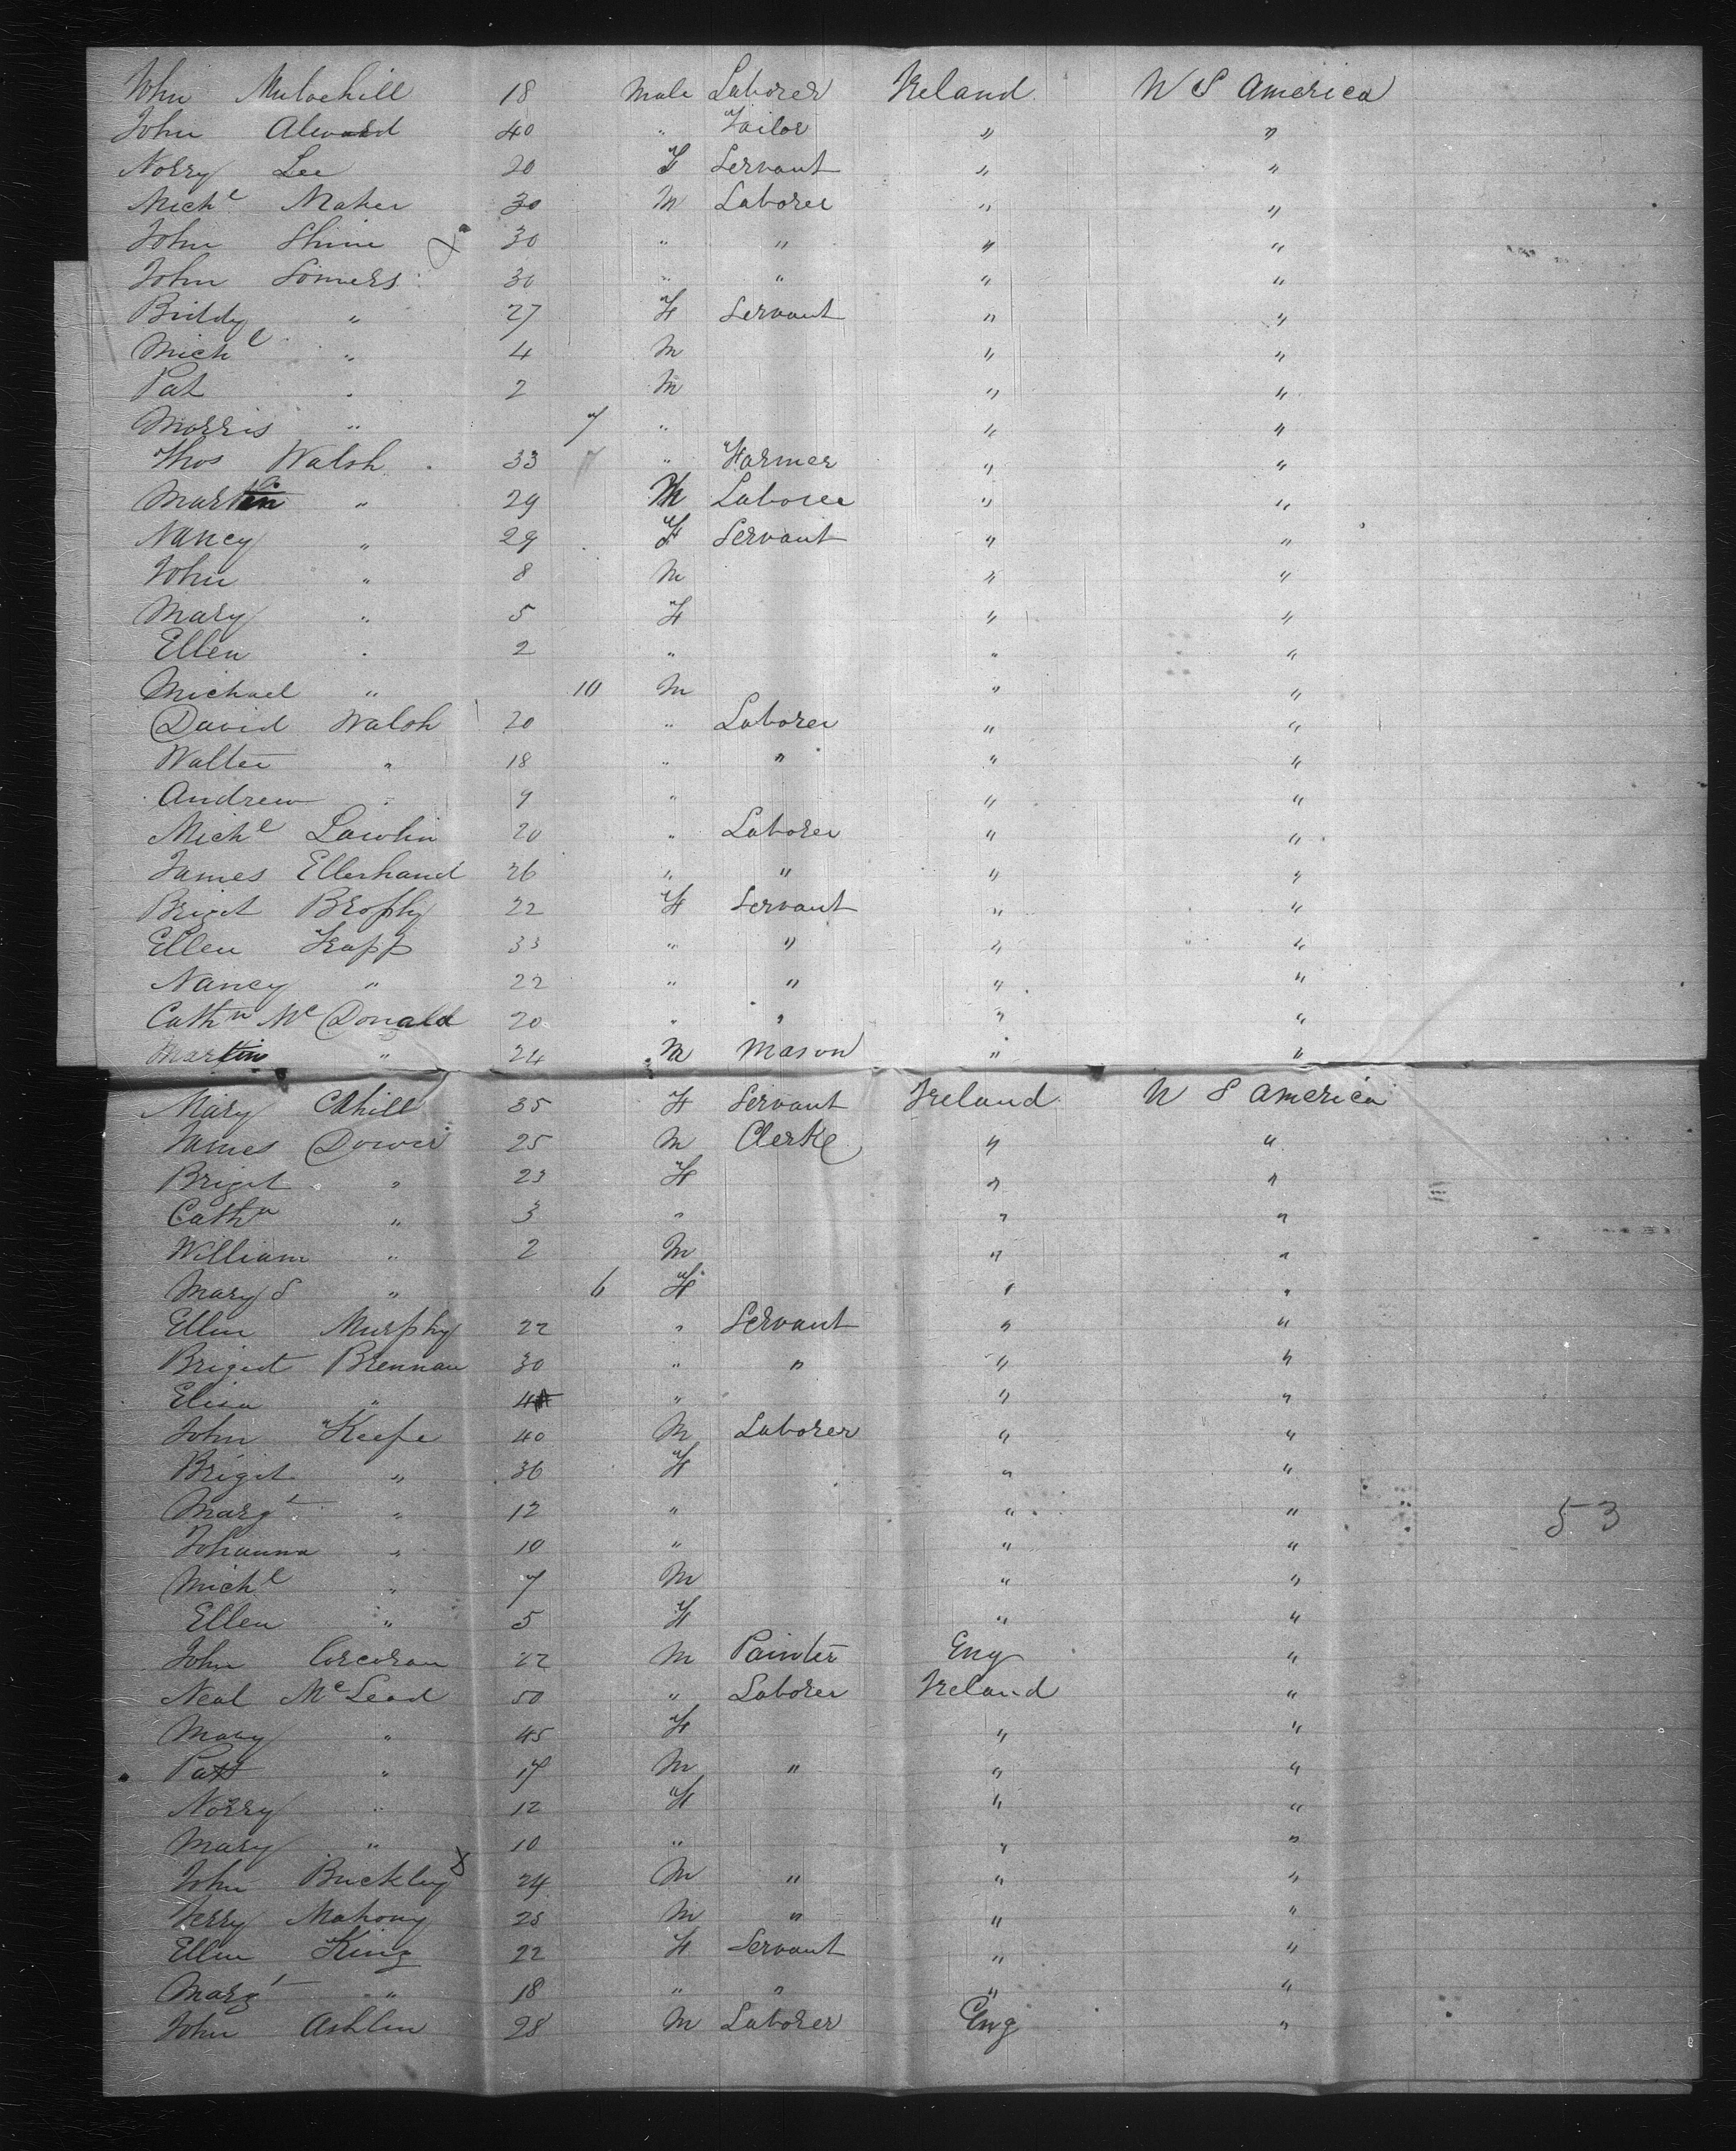 John Mulochill 18 Male Laborer Ireland U S America
John Alward 40 " Tailor " "
Norry Lee 20 F Servant " "
Michl Maher 30 M Laborer " "
John Shine 30 " " " "
John Somers 30 " " " "
Biddy " 27 F Servant " "
Michl " 4 M " "
Pat " 2 M " "
Morris " 7 " " "
Thos Walsh 33 " Farmer " "
Martin " 29 M Laborer " "
Nancy " 29 F Servant " "
John " 8 M " "
Mary " 5 F " "
Ellen " 2 " " "
Michael " 10 M " "
David Walsh 20 " Laborer " "
Walter " 18 " " " "
Andrew " 9 " " "
Michl Lawlin 20 " Laborer " "
James Ellerhand 26 " " " "
Briget Brophy 22 F Servant " "
Ellen Trapp 33 " " " "
Nancy " 22 " " " "
Cathn Mc Donald 20 " " " "
Martin " 24 M Mason " "
Mary Cahill 35 F Servant Ireland U S America
James Dower 25 M Clerk " "
Briget " 23 F " "
Cathn " 3 " " "
William " 2 M " "
Mary S " 6 F " "
Ellen Murphy 22 " Servant " "
Briget Brennan 30 " " " "
Eliza " 4 " " "
John Keefe 40 M Laborer " "
Briget " 36 F " "
Margt " 12 " " "
Johanna " 10 " " "
Michl " 7 M " "
Ellen " 5 F " "
John Corcoran 22 M Painter Eng "
Neal McLeod 50 " Laborer Ireland "
Mary " 45 F " "
Patt " 17 M " " "
Norry " 12 F " "
Mary " 10 " " "
John Buckley 24 M " " "
Jerry Mahony 25 M " " "
Ellen King 22 F Servant " "
Margt " 18 " " " "
John Ashlin 28 M Laborer Eng "
53